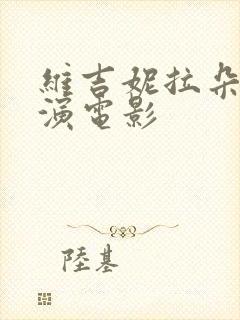 維吉妮拉朵
演電影
陸基